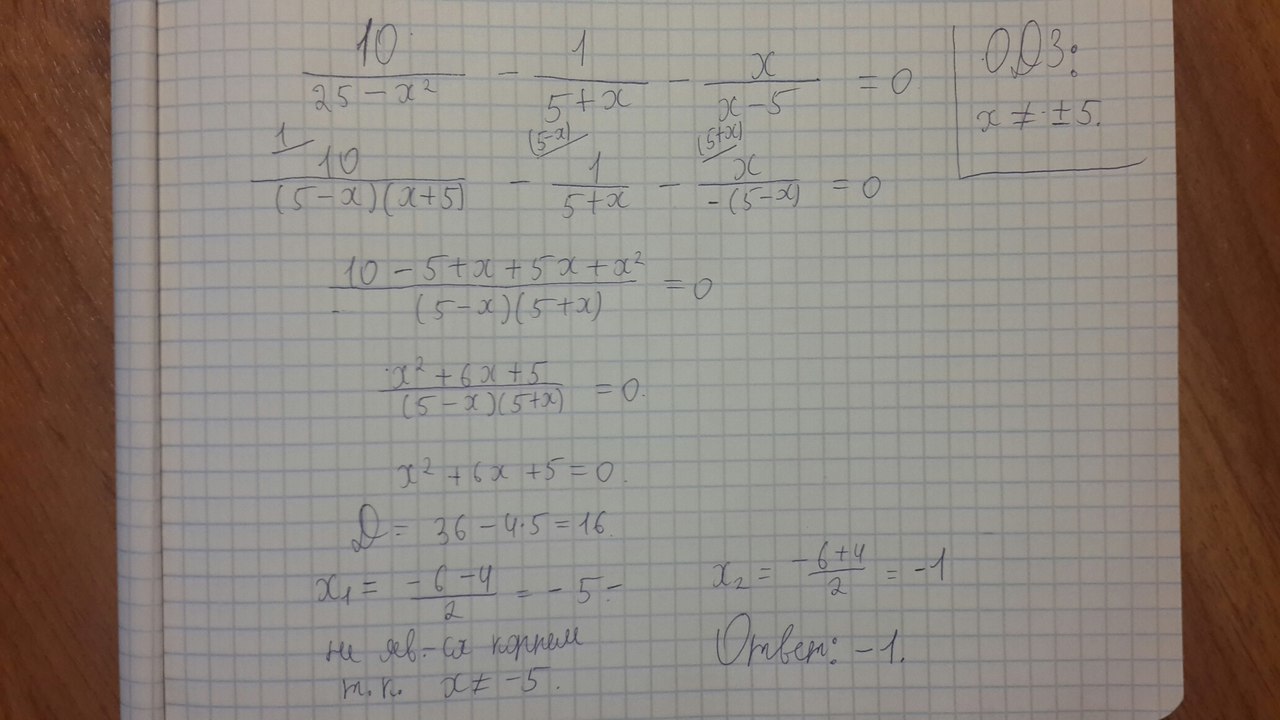 10/(25 − x²) − 1/(5 + x) − x/(x − 5) = 0
ОДЗ:
x ≠ ±5.
1 (5−x) (5+x)
10/((5 − x)(x + 5)) − 1/(5 + x) − x/(−(5 − x)) = 0
(10 − 5 + x + 5x + x²)/((5 − x)(5 + x)) = 0
(x² + 6x + 5)/((5 − x)(5 + x)) = 0.
x² + 6x + 5 = 0.
D = 36 − 4·5 = 16.
x₁ = (−6 − 4)/2 = −5 −
не яв-ся корнем
т.к. x ≠ −5.
x₂ = (−6 + 4)/2 = −1
Ответ: −1.